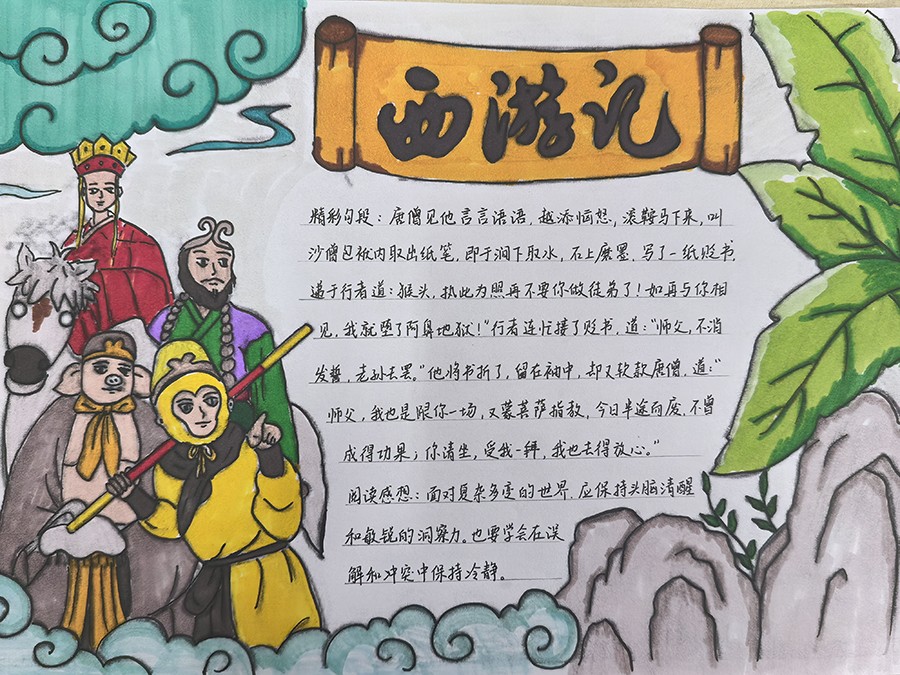 西游记
精彩句段：唐僧见他言言语语，越添恼怒，滚鞍马下来，叫
沙僧包袱内取出纸笔，即于涧下取水，石上磨墨，写了一纸贬书，
递于行者道：猴头，执此为照再不要你做徒弟了！如再与你相
见，我就堕了阿鼻地狱！”行者连忙接了贬书，道：“师父，不消
发誓，老孙去罢。”他将书折了，留在袖中，却又软款唐僧，道：“
师父，我也是跟你一场，又蒙菩萨指教，今日半途而废，不曾
成得功果；你请坐，受我一拜，我也去得放心。”
阅读感想：面对复杂多变的世界，应保持头脑清醒
和敏锐的洞察力。也要学会在误
解和冲突中保持冷静。